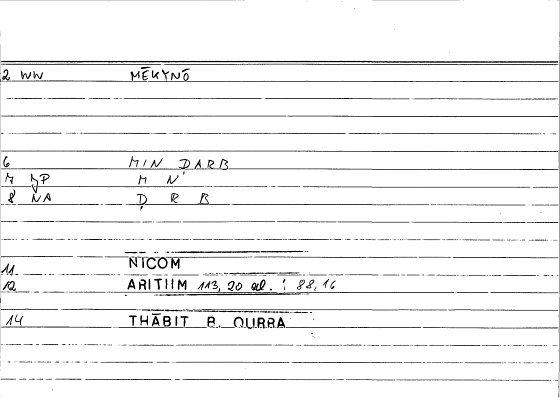 2 WW MĒKYNŌ
6 MIN DARB
7 JP M N
8 NA Ḍ R B
11 NICOM
12 ARITIIM 113, 20 al. : 88, 16
14 THĀBIT B. QURRA